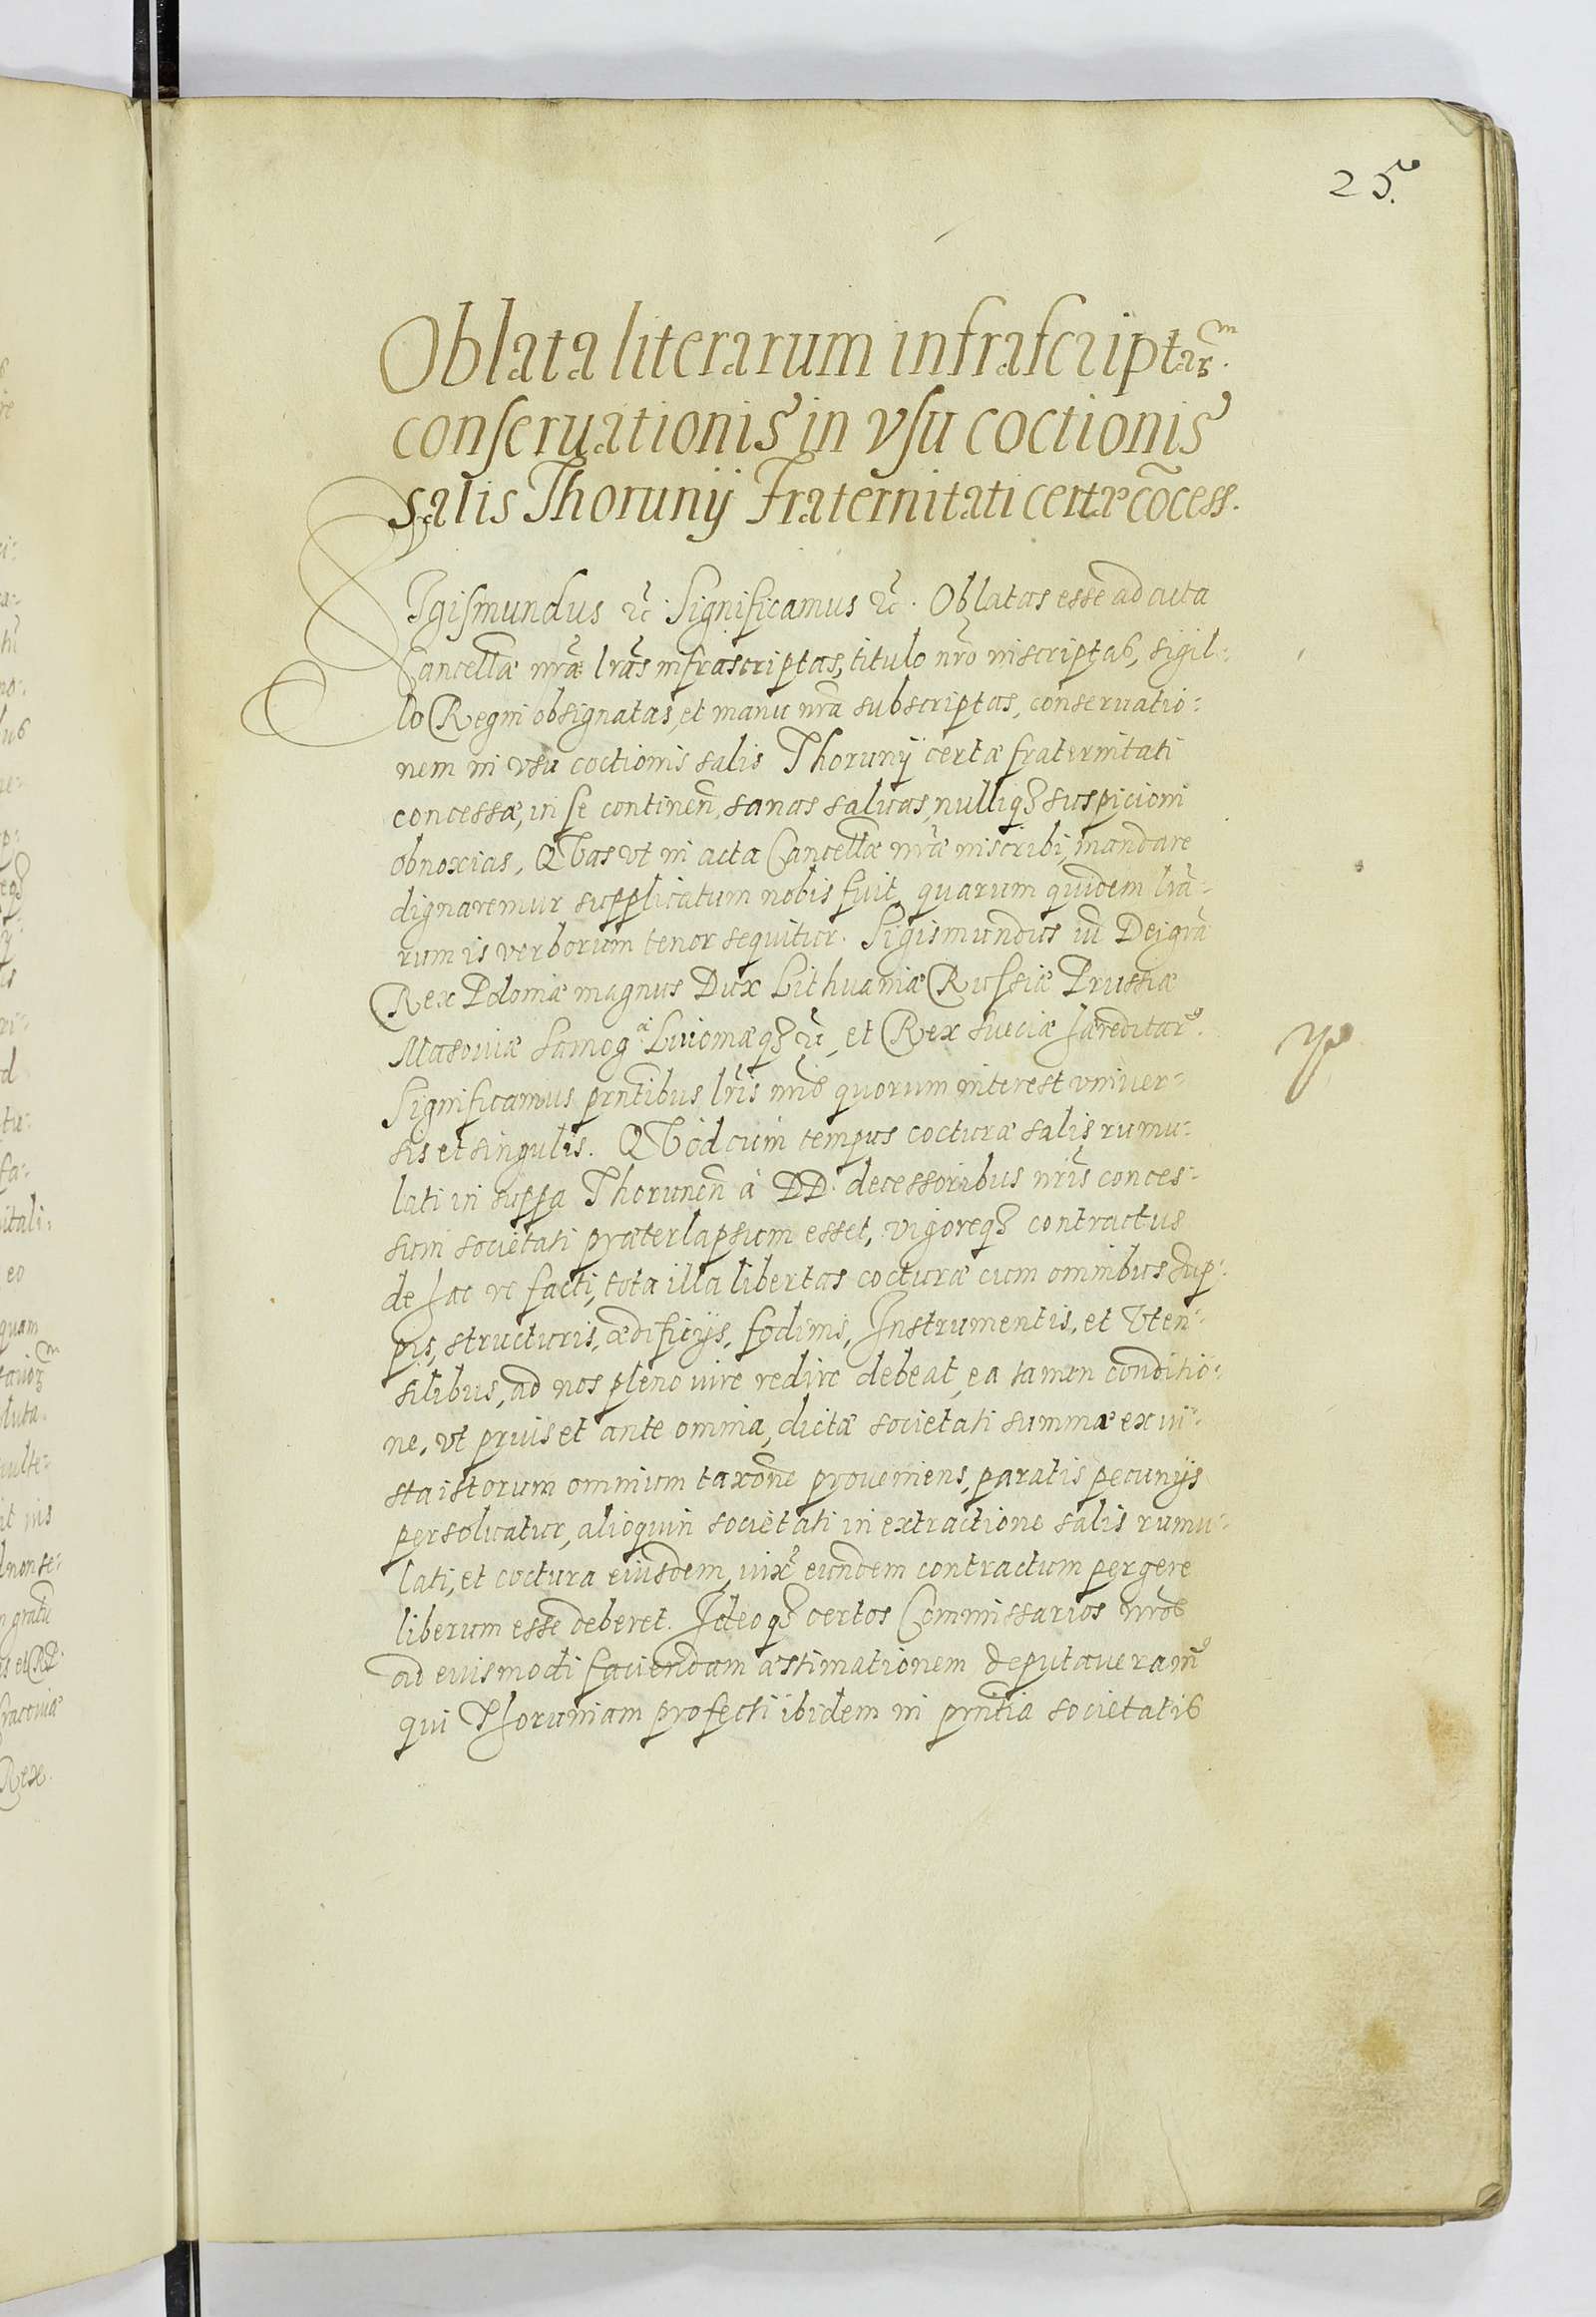 25.
Oblata literarum infrascriptarm.
conseruationis in vsu coctionis
salis Thorunij Fraternitati certæ cõcess.
SIgismundus etc. Significamus etc. Oblatas esse ad acta
Cancellæ nrãe lrãs infrascriptas, titulo nrõ inscriptas, sigil-
lo Regni obsignatas, et manu nrã subscriptas, conseruatio-
nem in vsu coctionis salis Thorunij certæ fraternitati
concessæ, in se continen, sanas saluas, nulliq3 suspicioni
obnoxias. QVas vt in acta Cancellæ nrãe inscribi, mandare
dignaremur supplicatum nobis fuit, quarum quidem lrã-
rum is verborum tenor sequitur. Sigismundus iii Dei grã
Rex Poloniæ magnus Dux Lithuaniæ Russiæ Prussiæ
Masouiæ Samog: Liuoniæq3 etc, et Rex Sueciæ hæreditar9.
Significamus prñtibus lrĩs nrĩs quorum interest vniuer-
sis et singulis. QVod cum tempus cocturæ salis rumu-
lati in suppa Thorunen̄ à DD. decessoribus nrĩs conces-
sum societati præterlapsum esset, vigoreq3 contractus
de hac re facti, tota illa libertas cocturæ cum omnibus sup-
pis, structuris, ædificijs, fodinis, Instrumentis, et Vten-
silibus, ad nos pleno iure redire debeat, ea tamen conditio-
ne, vt prius et ante omnia, dictæ societati summa ex iu-
sta istorum omnium taxõne proueniens, paratis pecunijs
persoluatur, alioquin societati in extractione salis rumu-
lati, et coctura eiusdem, iuxt eundem contractum pergere
liberum esse deberet. Ideoq3 certos Commissarios nrõs
ad eiusmodi faciendam æstimationem deputaueram9
qui Thoruniam profecti ibidem in prñtia societatis